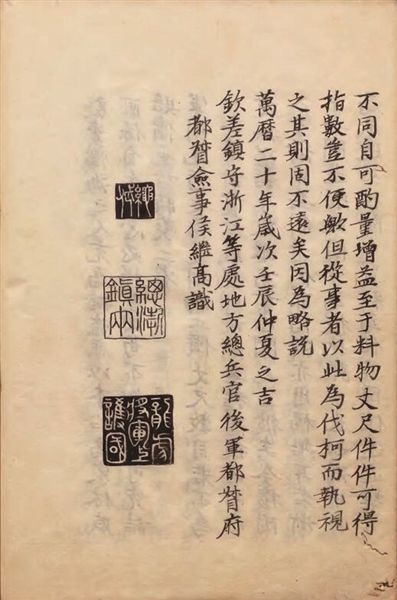 不同自可酌量增益至于料物丈尺件件可得
指數豈不便歟但從事者以此為伐柯而執視
之其則固不遠矣因為略說
萬曆二十年歲次壬辰仲夏之吉
欽差鎮守浙江等處地方總兵官後軍都督府
都督僉事侯繼高識
繩武
總鎮兩浙
龍虎將軍上護國